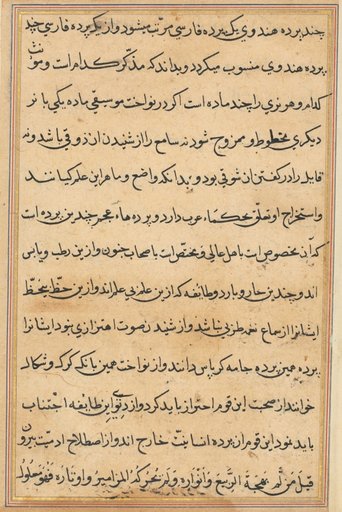 چند پرده هندوی یک پرده فارسی مرتب میشود و از یک پرده فارسی چند
پرده هندوی منسوب میگردد و بداند که مذکر کدام است و مونث
کدام و هر نری را چند ماده است اکر در نواخت موسیقی ماده یکی با نر
دیکری مخطوط و ممزوج شود نه سامع را از شنیدن ان ذوقی باشد و نه
قایل را در کفتن ان شوقی بود و بداند که واضع و ماهر این علم کیانند
و استخراج او تعلق بحکماء عرب دارد و پرده هاء عجم چند پرده است
که ان مخصوص است باهل عالم و مختص است باصحاب جنون و از بن رطب و یابس
اند و چند بن حار و بارد و طایفه که از بن علم بی علم اند و از بن حظ محظ
ایشانرا از سماع طربی نباشد و از شنیدن صوت اهتزازی نبود ایشانرا
پرده همین پرده جامه کرباس دانند و از نواخت همین بانک کرک و شکال
خوانند از صحبت این قوم احتراز باید کرد و از دنو این طایفه اجتناب
باید نمود این قوم از پرده انسانیت خارج اند و از اصطلاح ادمیت بیرون
قیل من لم یهجه الربیع و انواره و لم تحرکه المزامیر و اوتاره فهو معلول